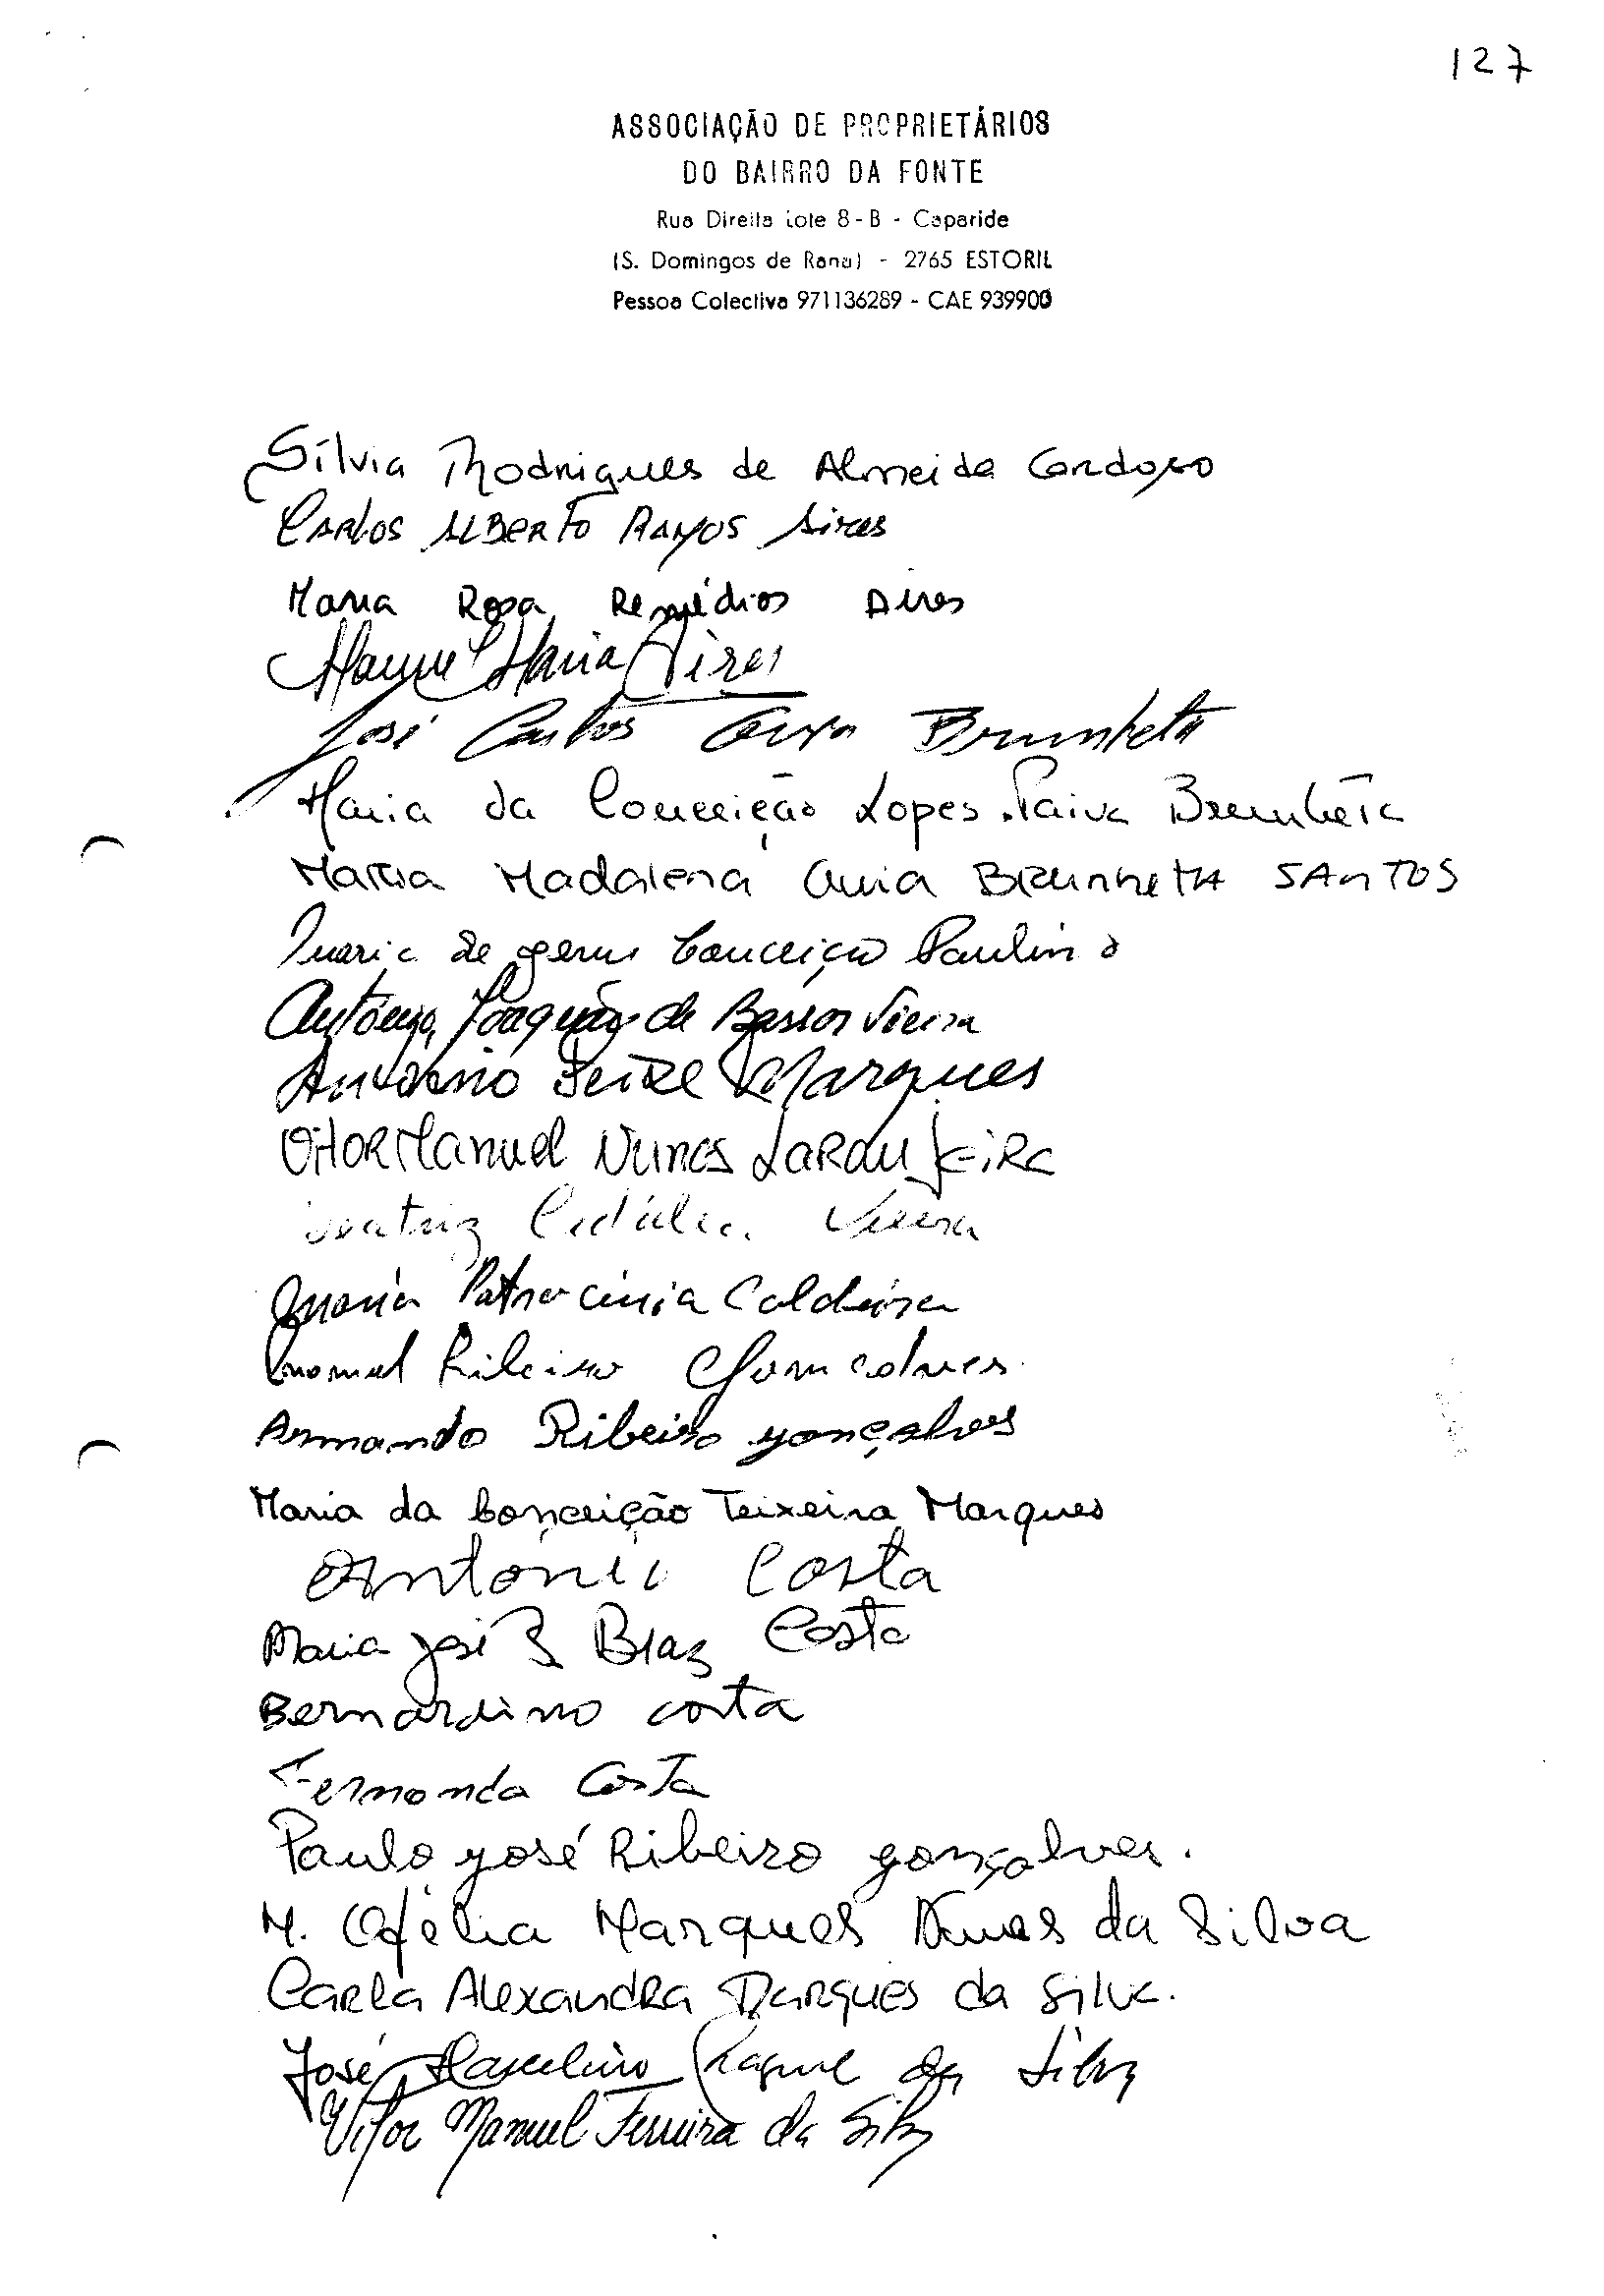 127
ASSOCIAÇÃO DE PROPRIETÁRIOS
DO BAIRRO DA FONTE
Rua Direita Lote 8-B - Caparide
(S. Domingos de Rana) - 2765 ESTORIL
Pessoa Colectiva 971136289 - CAE 939900
Sílvia Rodrigues de Almeida Cardoso
Carlos Alberto Ramos Aires
Maria Rosa Remédios Aires
Manuel Maria Aires
José Carlos Brunheta
Maria da Conceição Lopes Paiva Brunheta
Maria Madalena Brunheta SANTOS
Maria de Conceição Paulino
António Joaquim de Barros Vieira
António Marques
Vitor Manuel Nunes Laranjeira
Beatriz Vieira
Maria Patrocinia Caldeira
Manuel Ribeiro Goncalves
Armando Ribeiro Gonçalves
Maria da Conceição Teixeira Marques
António Costa
Maria José Braz Costa
Bernardino Costa
Fernanda Costa
Paulo José Ribeiro Gonçalves.
M. Ofélia Marques Nunes da Silva
Carla Alexandra Marques da Silva.
José Marcelino da Silva
Vitor Manuel Ferreira da Silva